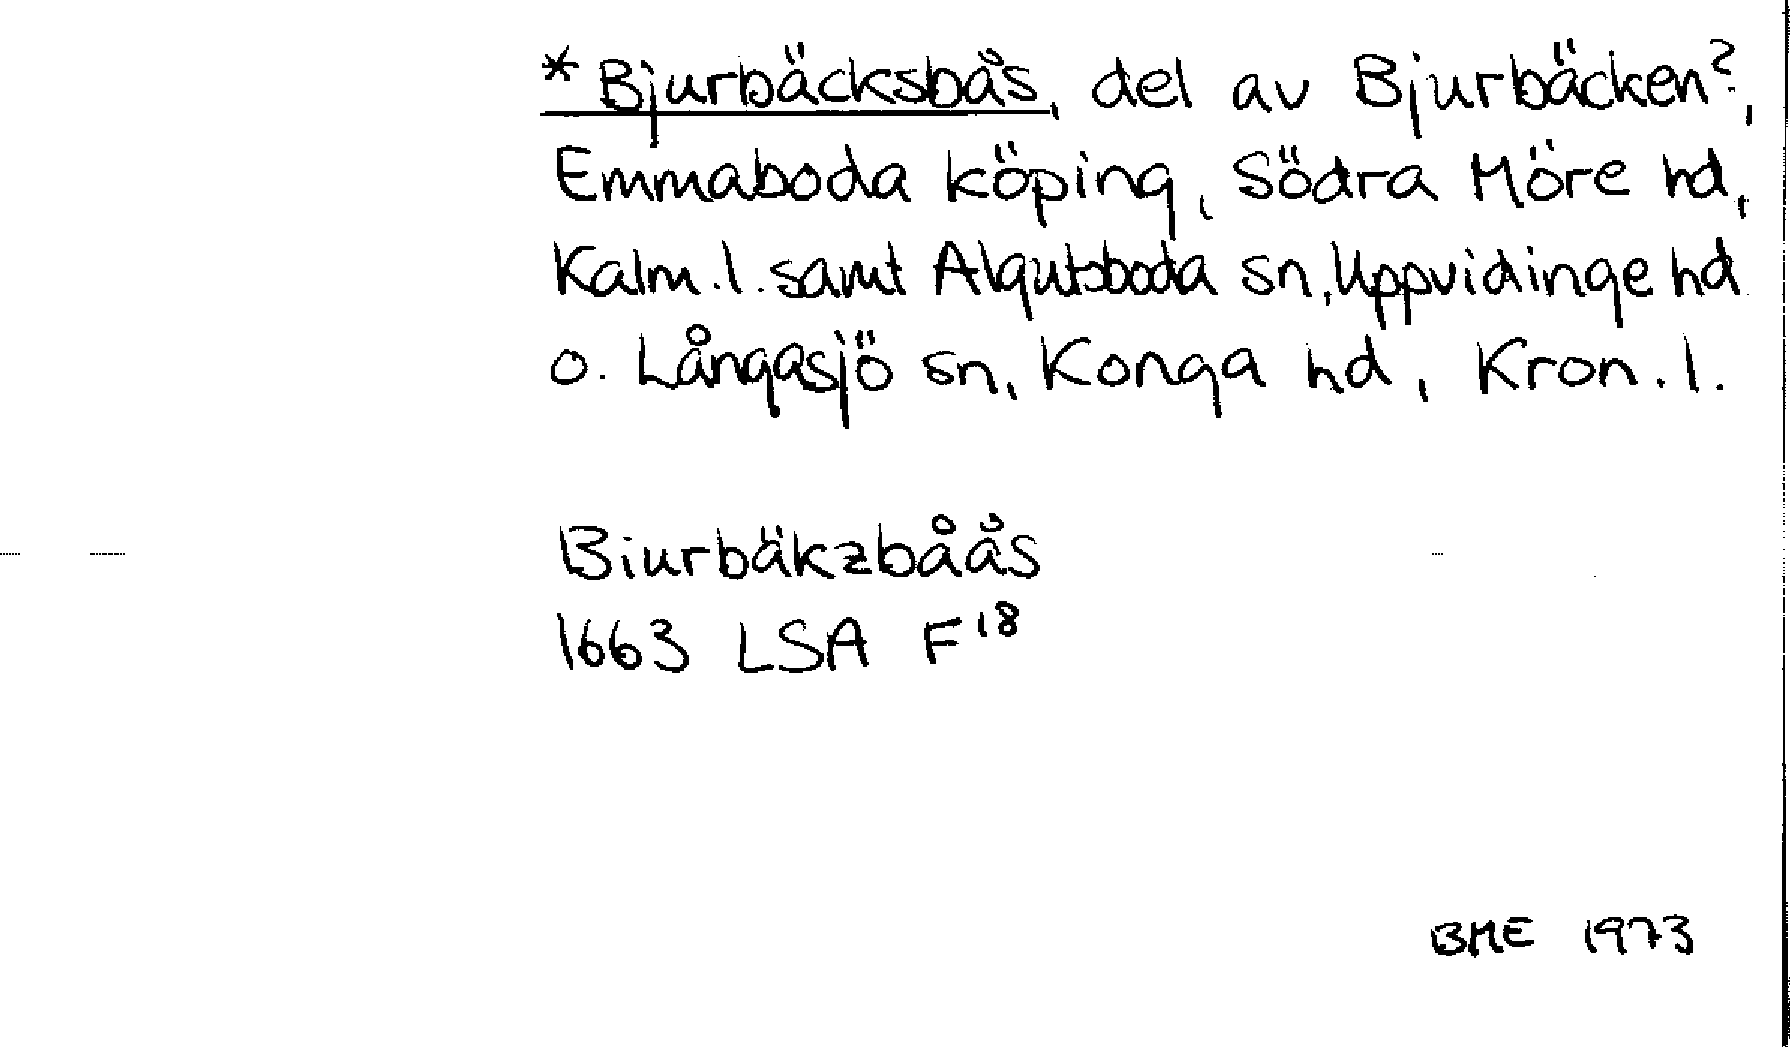 *Bjurbäcksbås, del av Bjurbäcken?,
Emmaboda köping, Södra Möre hd,
Kalm.l. samt Algutsboda sn, Uppvidinge hd
o. Långasjö sn, Konga hd, Kron.l.
Biurbäkzbåås
1663 LSA F¹⁸
BME 1973